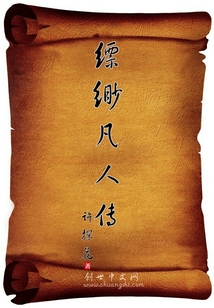 缥缈凡人传
许探花
创世中文网
www.chuangshi.com